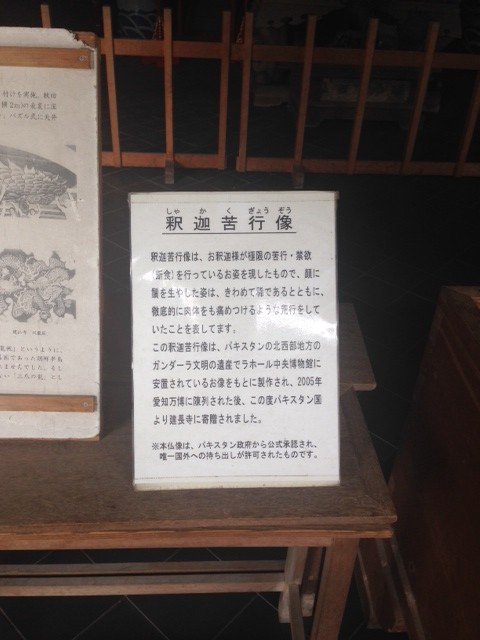 付けを実施。
しゃ か く ぎょう ぞう
釈迦苦行像
釈迦苦行像は、お釈迦様が極限の苦行・禁欲
(断食)を行っているお姿を現したもので、顔に
鬚を生やした姿は、きわめて稀であるとともに、
徹底的に肉体をも痛めつけるような荒行をして
いたことを表してます。
この釈迦苦行像は、パキスタンの北西部地方の
ガンダーラ文明の遺産でラホール中央博物館に
安置されているお像をもとに製作され、2005年
愛知万博に陳列された後、この度パキスタン国
より建長寺に寄贈されました。
※本仏像は、パキスタン政府から公式承認され、
唯一国外への持ち出しが許可されたものです。